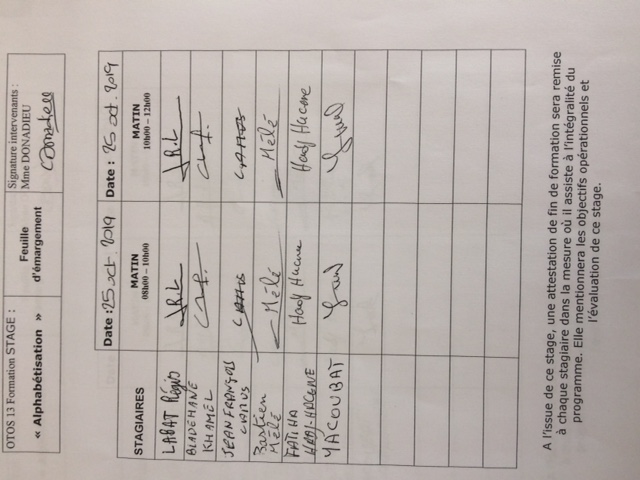 OTOS 13 Formation STAGE :
« Alphabétisation »
Feuille
d'émargement
Signature intervenants :
Mme DONADIEU
Date : 25 oct. 2019
Date : 25 oct. 2019
STAGIAIRES
MATIN
08h00 – 10h00
MATIN
10h00 – 12h00
LABAT Régis
J.R.L
J.R.L
KHAMEL
JEAN FRANÇOIS
CAMUS
Bastien
Mélé
Mélé
Mélé
FATIHA
HADJ-HACENE
Hadj Hacene
Hadj Hacene
YACOUBAT
A l'issue de ce stage, une attestation de fin de formation sera remise
à chaque stagiaire dans la mesure où il assiste à l'intégralité du
programme. Elle mentionnera les objectifs opérationnels et
l'évaluation de ce stage.